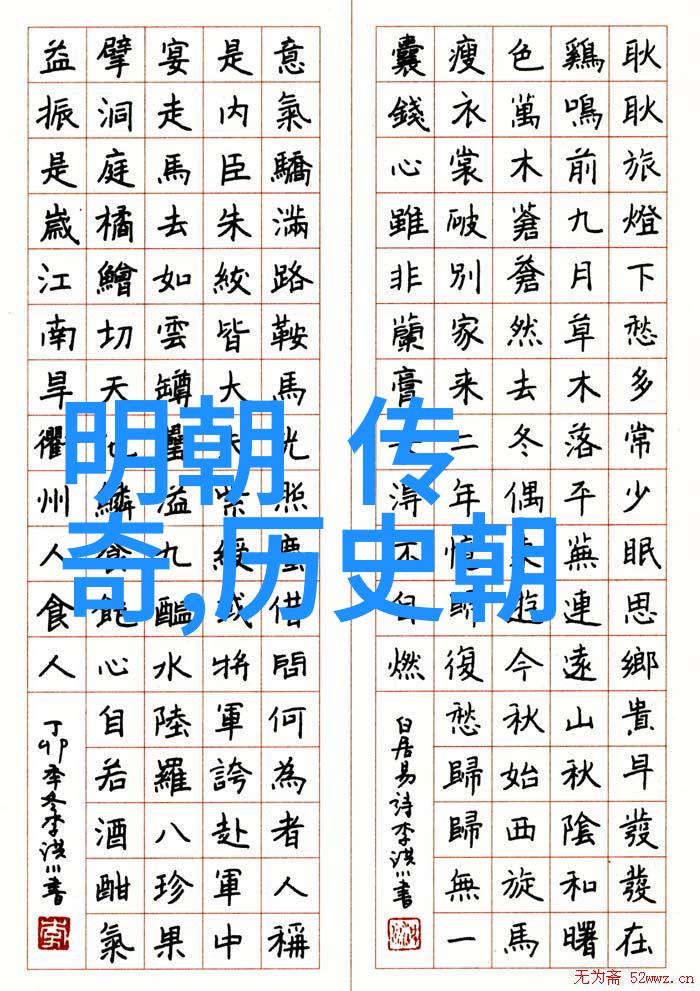 耿耿旅燈下愁多常少眠思鄉貴早發發在
鷄鳴前九月草木落平蕪連遠山秋陰和曙
色萬木蒼蒼然去冬偶東遊今秋始西旋馬
瘦衣裳破別家来二年憶歸復愁歸歸無一
囊錢心雖非蘭膏得不自燃
白居易诗李洪川書
意氣驕滿路鞍馬光照塵借問何為者人稱
是内臣朱紱皆大夫紫綬或将軍誇赴軍中
宴走馬去如雲罇罍溢九醖水陸羅八珍果
擘洞庭橘鱠切天池鱗食飽心自若酒酣氣
益振是歲江南旱衢州人食人
丁卯季冬李洪川書
明朝 传
奇,历史朝
无为斋 52wwz.cn